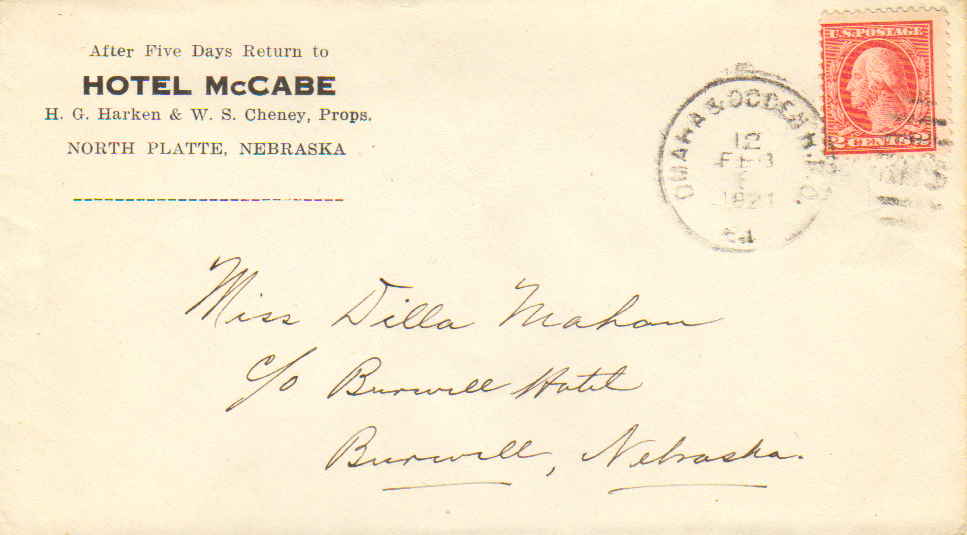 After Five Days Return to
HOTEL McCABE
H. G. Harken & W. S. Cheney, Props.
NORTH PLATTE, NEBRASKA
U.S. POSTAGE
2 CENTS 2
OMAHA & OGDEN R.P.O.
12
FEB
1921
Miss Dilla Mahon
c/o Burwell Hotel
Burwell, Nebraska.